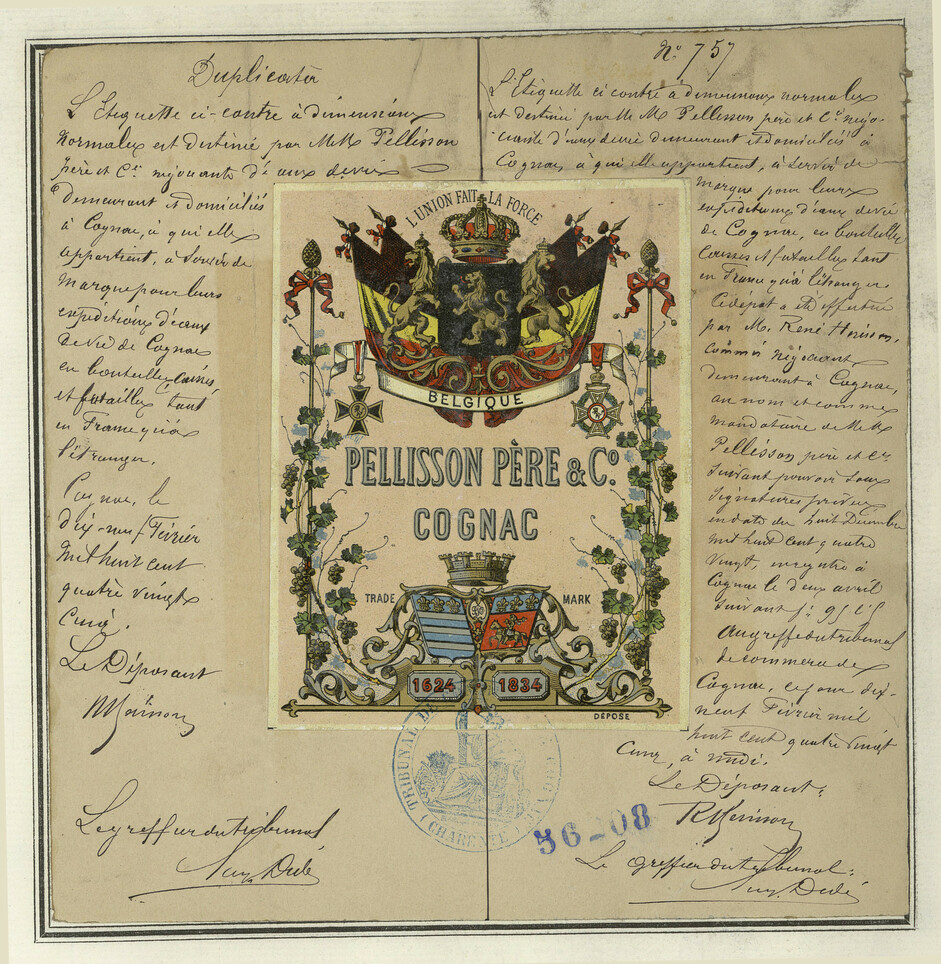 Duplicata
L'Etiquette ci-contre à dimensions
normales est destinée par M.M. Pellisson
père et Cie négociants d'eaux de vie
demeurant et domiciliés
à Cognac, à qui elle
appartient, à servir de
marque pour leurs
expéditions d'eaux
de vie de Cognac
en bouteilles, caisses
et futailles tant
en France qu'à
l'étranger.
Cognac, le
dix-neuf Février
mil huit cent
quatre vingt
cinq.
Le Déposant
Le greffier du tribunal
N° 757
L'Etiquette ci contre à dimensions normales
est destinée par M.M. Pellisson père et Cie négo-
ciants d'eaux de vie demeurant et domiciliés à
Cognac, à qui elle appartient, à servir de
marque pour leurs
expéditions d'eaux de vie
de Cognac, en bouteilles
caisses et futailles tant
en France qu'à l'étranger
Ce dépôt a été effectué
par M. René
commis négociant
demeurant à Cognac,
au nom et comme
mandataire de M.M.
Pellisson père et Cie
suivant pouvoir sous
signatures privées
en date du huit Décembre
mil huit cent quatre
vingt, enregistré à
Cognac le deux avril
suivant f°
au greffe du tribunal
de commerce de
Cognac, ce jour dix-
neuf Février mil
huit cent quatre vingt
cinq, à midi.
Le Déposant.
Le greffier du tribunal.
L'UNION FAIT LA FORCE
BELGIQUE
PELLISSON PÈRE & Co.
COGNAC
TRADE MARK
1624 1834
DÉPOSÉ
TRIBUNAL DE
(CHARENTE)
56-08